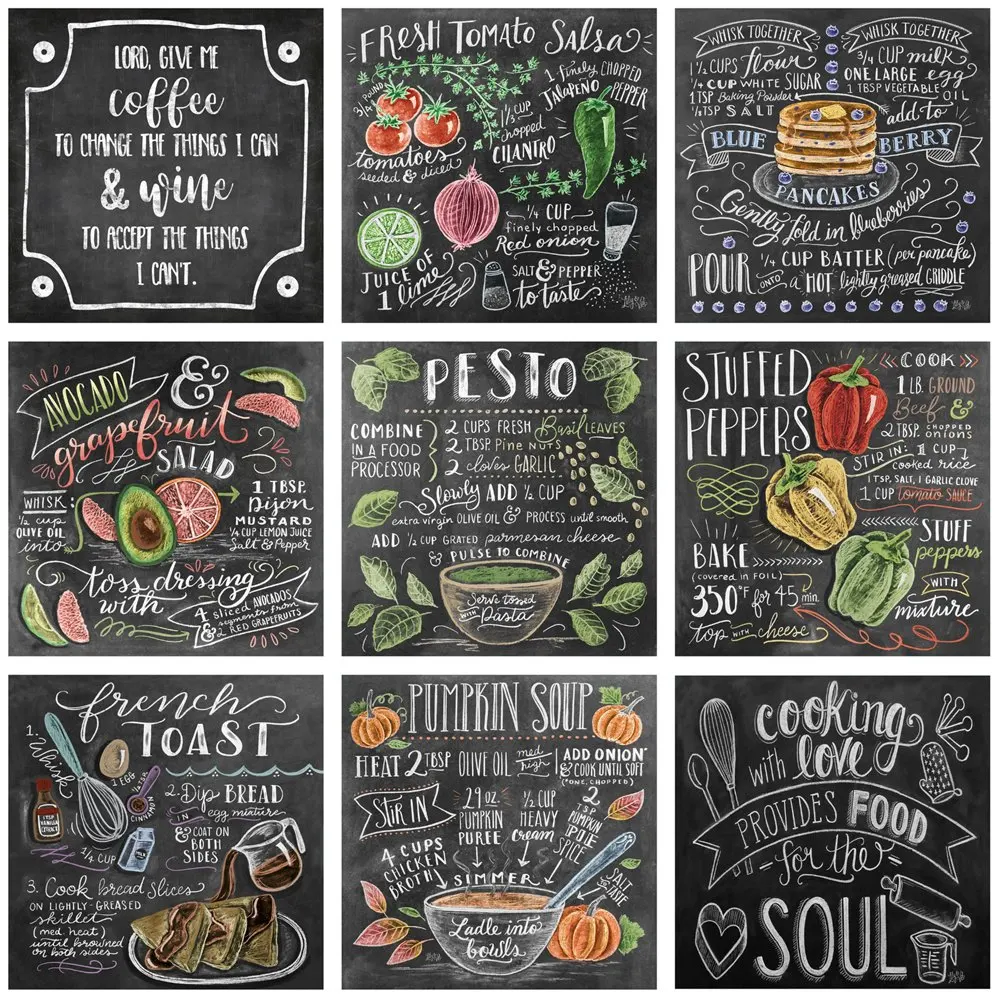 LORD, GIVE ME
coffee
TO CHANGE THE THINGS I CAN
& wine
TO ACCEPT THE THINGS
I CAN'T.
FRESH TOMATO SALSA
3/4 POUND
tomatoes
seeded & diced
1/3 CUP
chopped
CILANTRO
1 finely CHOPPED
JALAPEÑO PEPPER
JUICE OF
1 lime
1/4 CUP
finely chopped
Red onion
SALT & PEPPER
to taste
WHISK TOGETHER
1 1/2 CUPS flour
1/4 CUP WHITE SUGAR
1 TSP Baking Powder
1/2 TSP SALT
WHISK TOGETHER
3/4 CUP milk
ONE LARGE egg
1 TBSP VEGETABLE OIL
add to
BLUE BERRY
PANCAKES
Gently fold in blueberries
POUR 1/4 CUP BATTER (per pancake)
ONTO a HOT lightly greased GRIDDLE
AVOCADO &
grapefruit
SALAD
WHISK
1/2 cup
OLIVE OIL
into
1 TBSP.
Dijon
MUSTARD
1/4 CUP LEMON JUICE
Salt & Pepper
toss dressing
with
4 sliced AVOCADOS
& segments from
2 RED GRAPEFRUITS
PESTO
COMBINE
IN A FOOD
PROCESSOR
2 CUPS FRESH Basil LEAVES
2 TBSP. Pine NUTS
2 cloves GARLIC
Slowly ADD 1/2 CUP
extra virgin OLIVE OIL & PROCESS until smooth
ADD 1/2 CUP GRATED parmesan cheese
& PULSE TO COMBINE
Serve tossed
WITH Pasta
STUFFED
PEPPERS
COOK
1 LB. GROUND
Beef &
2 TBSP. CHOPPED onions
STIR IN: 1 CUP
cooked rice
1 TSP. SALT, 1 GARLIC CLOVE
1 CUP tomato SAUCE
STUFF
peppers
WITH
mixture
BAKE
(covered in FOIL)
350°F for 45 min.
top WITH cheese
french
TOAST
1. Whisk
1 EGG
1 TSP
VANILLA
EXTRACT
1/2 TSP
CINNAMON
1/4 CUP
MILK
2. Dip BREAD
IN egg mixture
& COAT ON
BOTH
SIDES
3. Cook bread slices
ON LIGHTLY-GREASED
skillet
(med. heat)
until browned
on both sides
PUMPKIN SOUP
HEAT 2 TBSP OLIVE OIL med high
ADD ONION
& COOK UNTIL SOFT
(ONE, CHOPPED)
STIR IN
4 CUPS
CHICKEN
BROTH
29 oz.
PUMPKIN
PUREE
1/2 CUP
HEAVY
cream
2 TSP
PUMPKIN
PIE
SPICE
SALT
TO TASTE
SIMMER
Ladle into
bowls
cooking
with love
PROVIDES FOOD
for the
SOUL